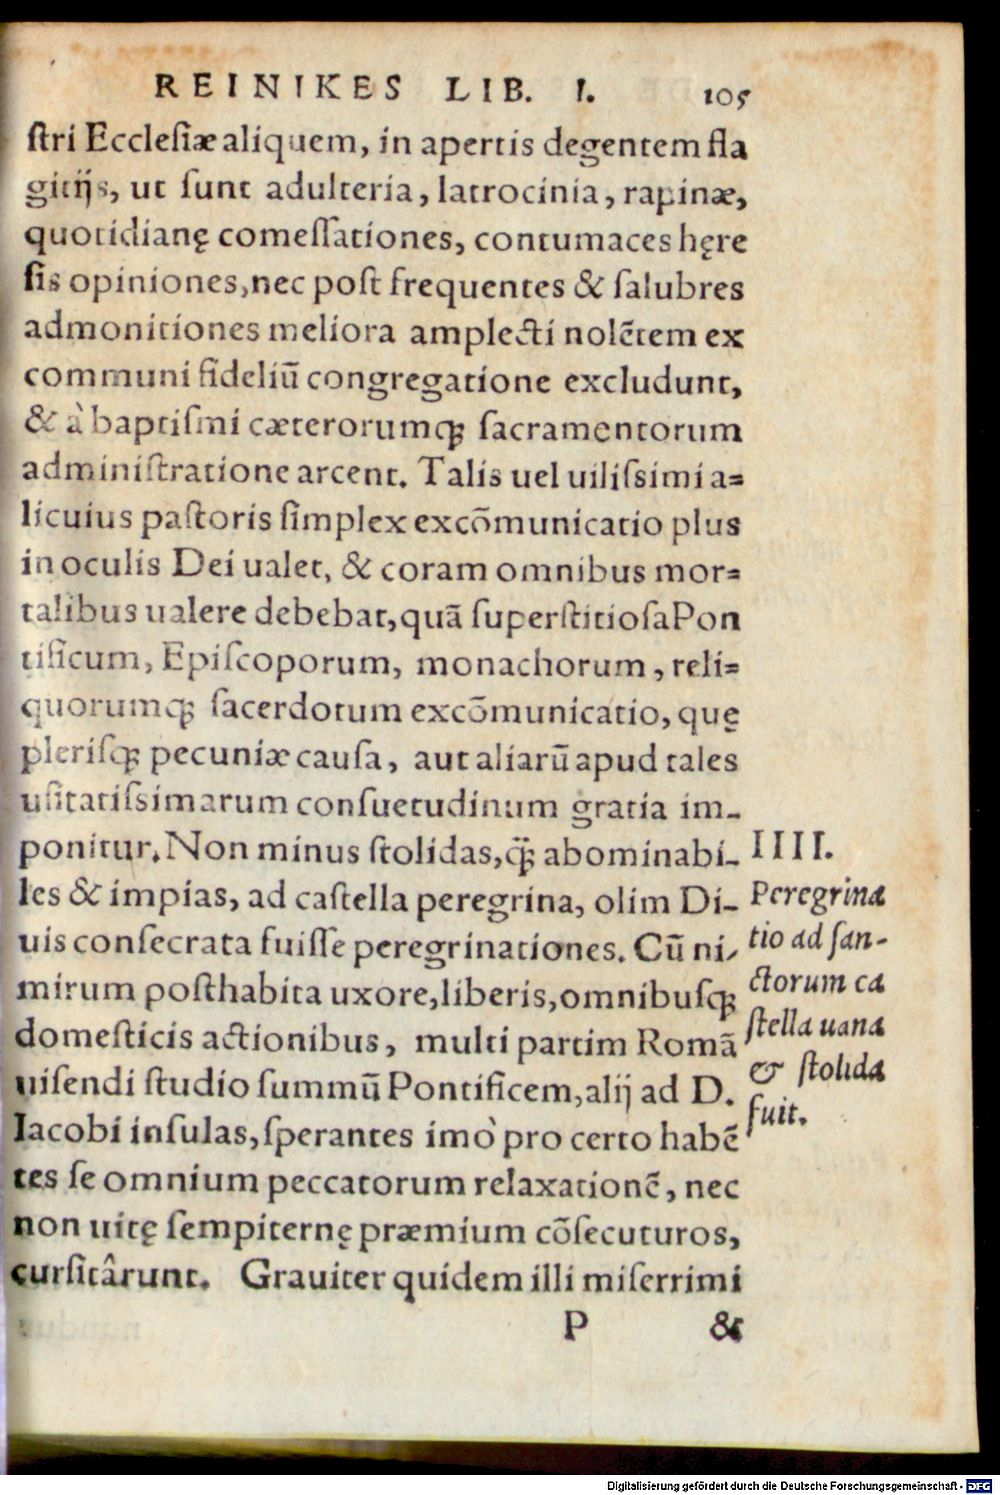 REINIKES LIB. I. 105
ſtri Eccleſiæ aliquem, in apertis degentem fla
gitijs, ut ſunt adulteria, latrocinia, rapinæ,
quotidianę comeſſationes, contumaces hęre
ſis opiniones, nec poſt frequentes & ſalubres
admonitiones meliora amplecti nolẽtem ex
communi fideliũ congregatione excludunt,
& à baptiſmi cæterorumq́; ſacramentorum
adminiſtratione arcent. Talis uel uiliſsimi a=
licuius paſtoris ſimplex excõmunicatio plus
in oculis Dei ualet, & coram omnibus mor=
talibus ualere debebat, quã ſuperſtitioſa Pon
tificum, Epiſcoporum, monachorum, reli=
quorumq́; ſacerdotum excõmunicatio, quę
pleriſq́; pecuniæ cauſa, aut aliarũ apud tales
uſitatiſsimarum conſuetudinum gratia im-
ponitur. Non minus ſtolidas, q̃; abominabi-
les & impias, ad caſtella peregrina, olim Di-
uis conſecrata fuiſſe peregrinationes. Cũ ni-
mirum poſthabita uxore, liberis, omnibuſq́;
domeſticis actionibus, multi partim Romã
uiſendi ſtudio ſummũ Pontificem, alij ad D.
Iacobi inſulas, ſperantes imò pro certo habẽ
tes ſe omnium peccatorum relaxationẽ, nec
non uitę ſempiternę præmium cõſecuturos,
curſitârunt. Grauiter quidem illi miſerrimi
P &
IIII.
Peregrina
tio ad ſan-
ctorum ca
ſtella uana
& ſtolida
fuit.
Digitalisierung gefördert durch die Deutsche Forschungsgemeinschaft - DFG